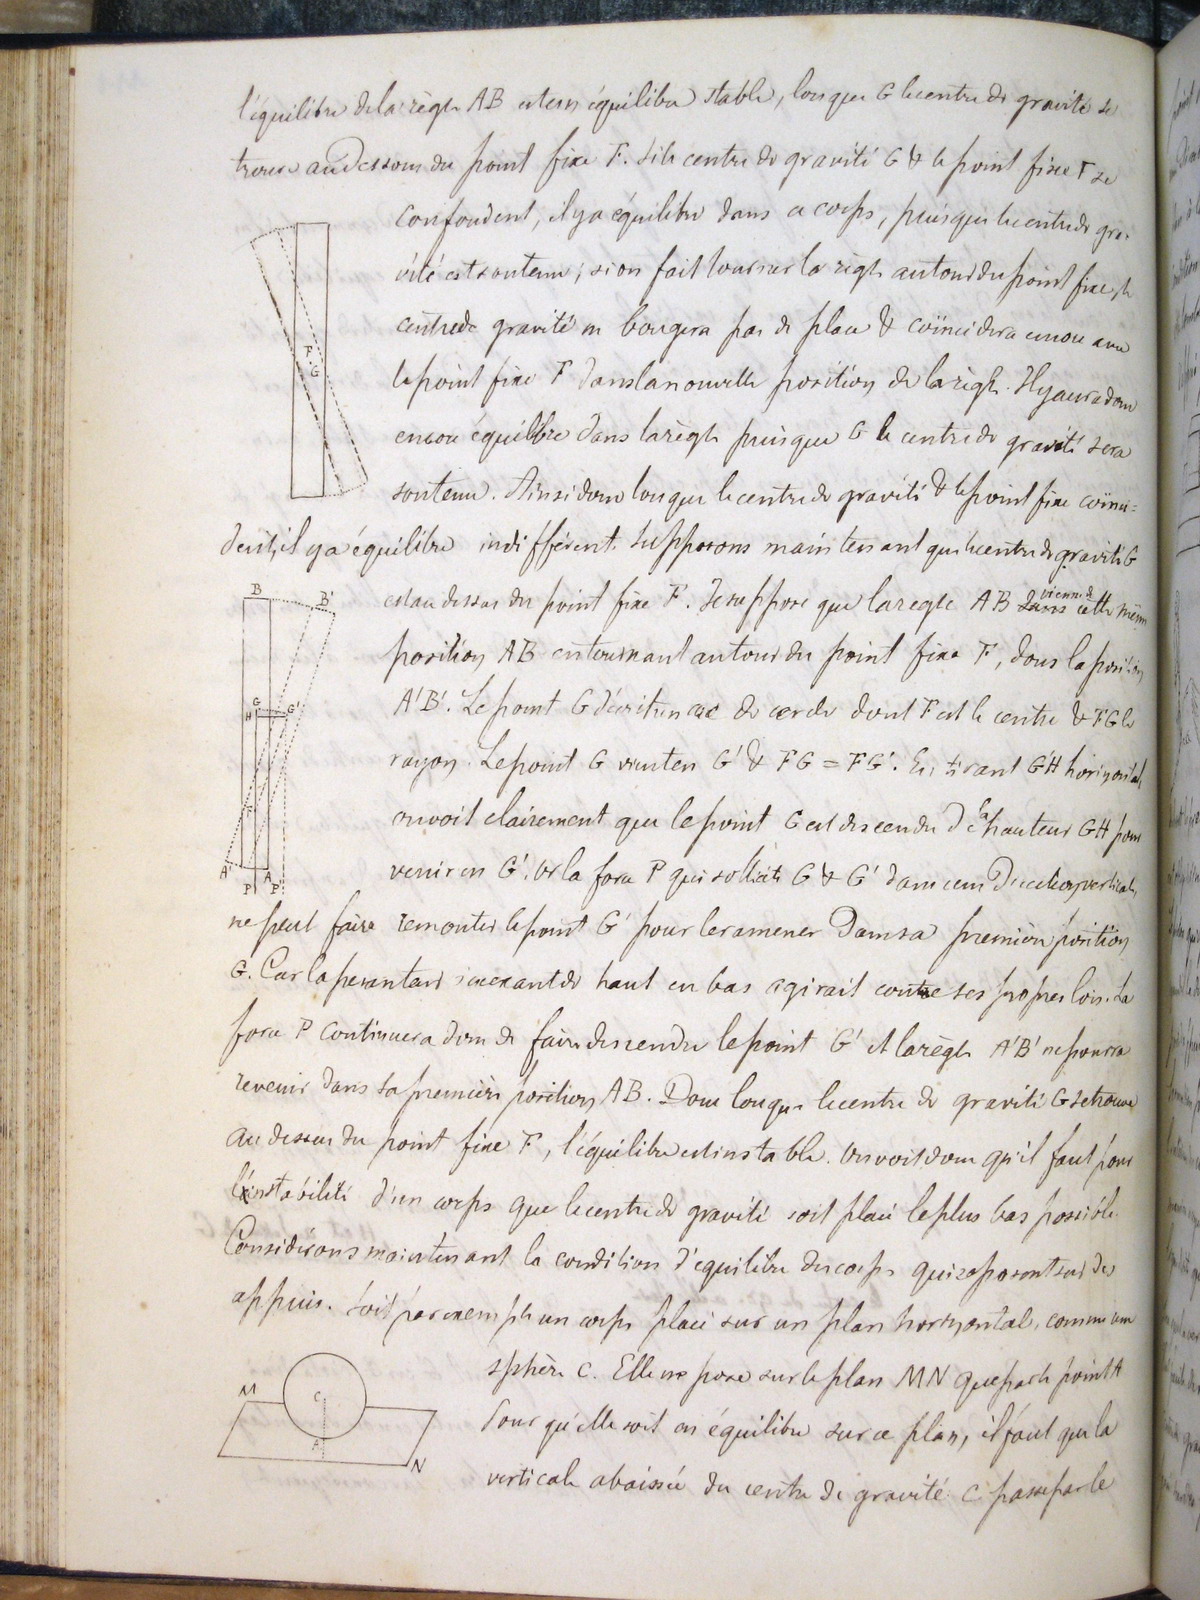 l'équilibre de la règle AB est un équilibre stable, lorsque G le centre de gravité se
trouve au dessous du point fixe F. Si le centre de gravité G & le point fixe F se
confondent, il y a équilibre dans ce corps, puisque le centre de gra-
vité est soutenu; si on fait tourner la règle autour du point fixe, le
centre de gravité ne bougera pas de place & coïncidera encore avec
le point fixe F dans la nouvelle position de la règle. Il y aura donc
encore équilibre dans la règle puisque G le centre de gravité sera
soutenu. Ainsi donc lorsque le centre de gravité & le point fixe coïnci-
dent, il y a équilibre indifférent. Supposons maintenant que le centre de gravité G
est au dessus du point fixe F. Je suppose que la règle AB vienne de cette même
position AB en tournant autour du point fixe F, dans la position
A'B'. Le point G décrit un arc de cercle dont F est le centre & FG le
rayon. Le point G vient en G' & FG = FG'. En tirant G'H horizontal,
on voit clairement que le point G est descendu de la hauteur GH pour
venir en G'. Or la force P qui sollicite G & G' dans une direction verticale,
ne peut faire remonter le point G' pour le ramener dans sa première position
G. Car la pesanteur s'exerçant de haut en bas agirait contre ses propres lois. La
force P continuera donc de faire descendre le point G' et la règle A'B' ne pourra
revenir dans sa première position AB. Donc lorsque le centre de gravité G se trouve
au dessus du point fixe F, l'équilibre est instable. On voit donc qu'il faut pour
l'instabilité d'un corps que le centre de gravité soit placé le plus bas possible.
Considérons maintenant la condition d'équilibre des corps qui reposent sur des
appuis. Soit par exemple un corps placé sur un plan horizontal, comme une
sphère C. Elle ne pose sur le plan MN que par le point A
Pour qu'elle soit en équilibre sur ce plan, il faut que la
verticale abaissée du centre de gravité C passe par le
F
G
B
B'
G
H
G'
F
A'
A
P
P'
M
C
A
N